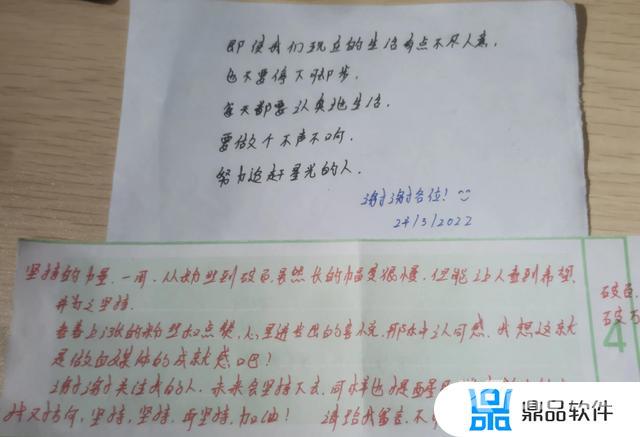 即使我们现在的生活有点不尽人意,
也不要停下脚步.
每天都要认真地生活.
要做个不声不响.
努力追赶星光的人.
谢谢各位!
24/3/2022
坚持的力量.一周.从粉丝到破百虽然长的幅度很慢.但能让人看到希望.
并为之坚持.
看着上涨的粉丝和点赞,心里迸发出的喜悦.那份认可感.我想这就
是做自媒体的成就感吧!
谢谢关注我的人.未来会坚持下去.
坚持,坚持,再坚持.加油! 请给我留言.不
破百.
破百
4
鼎品软件